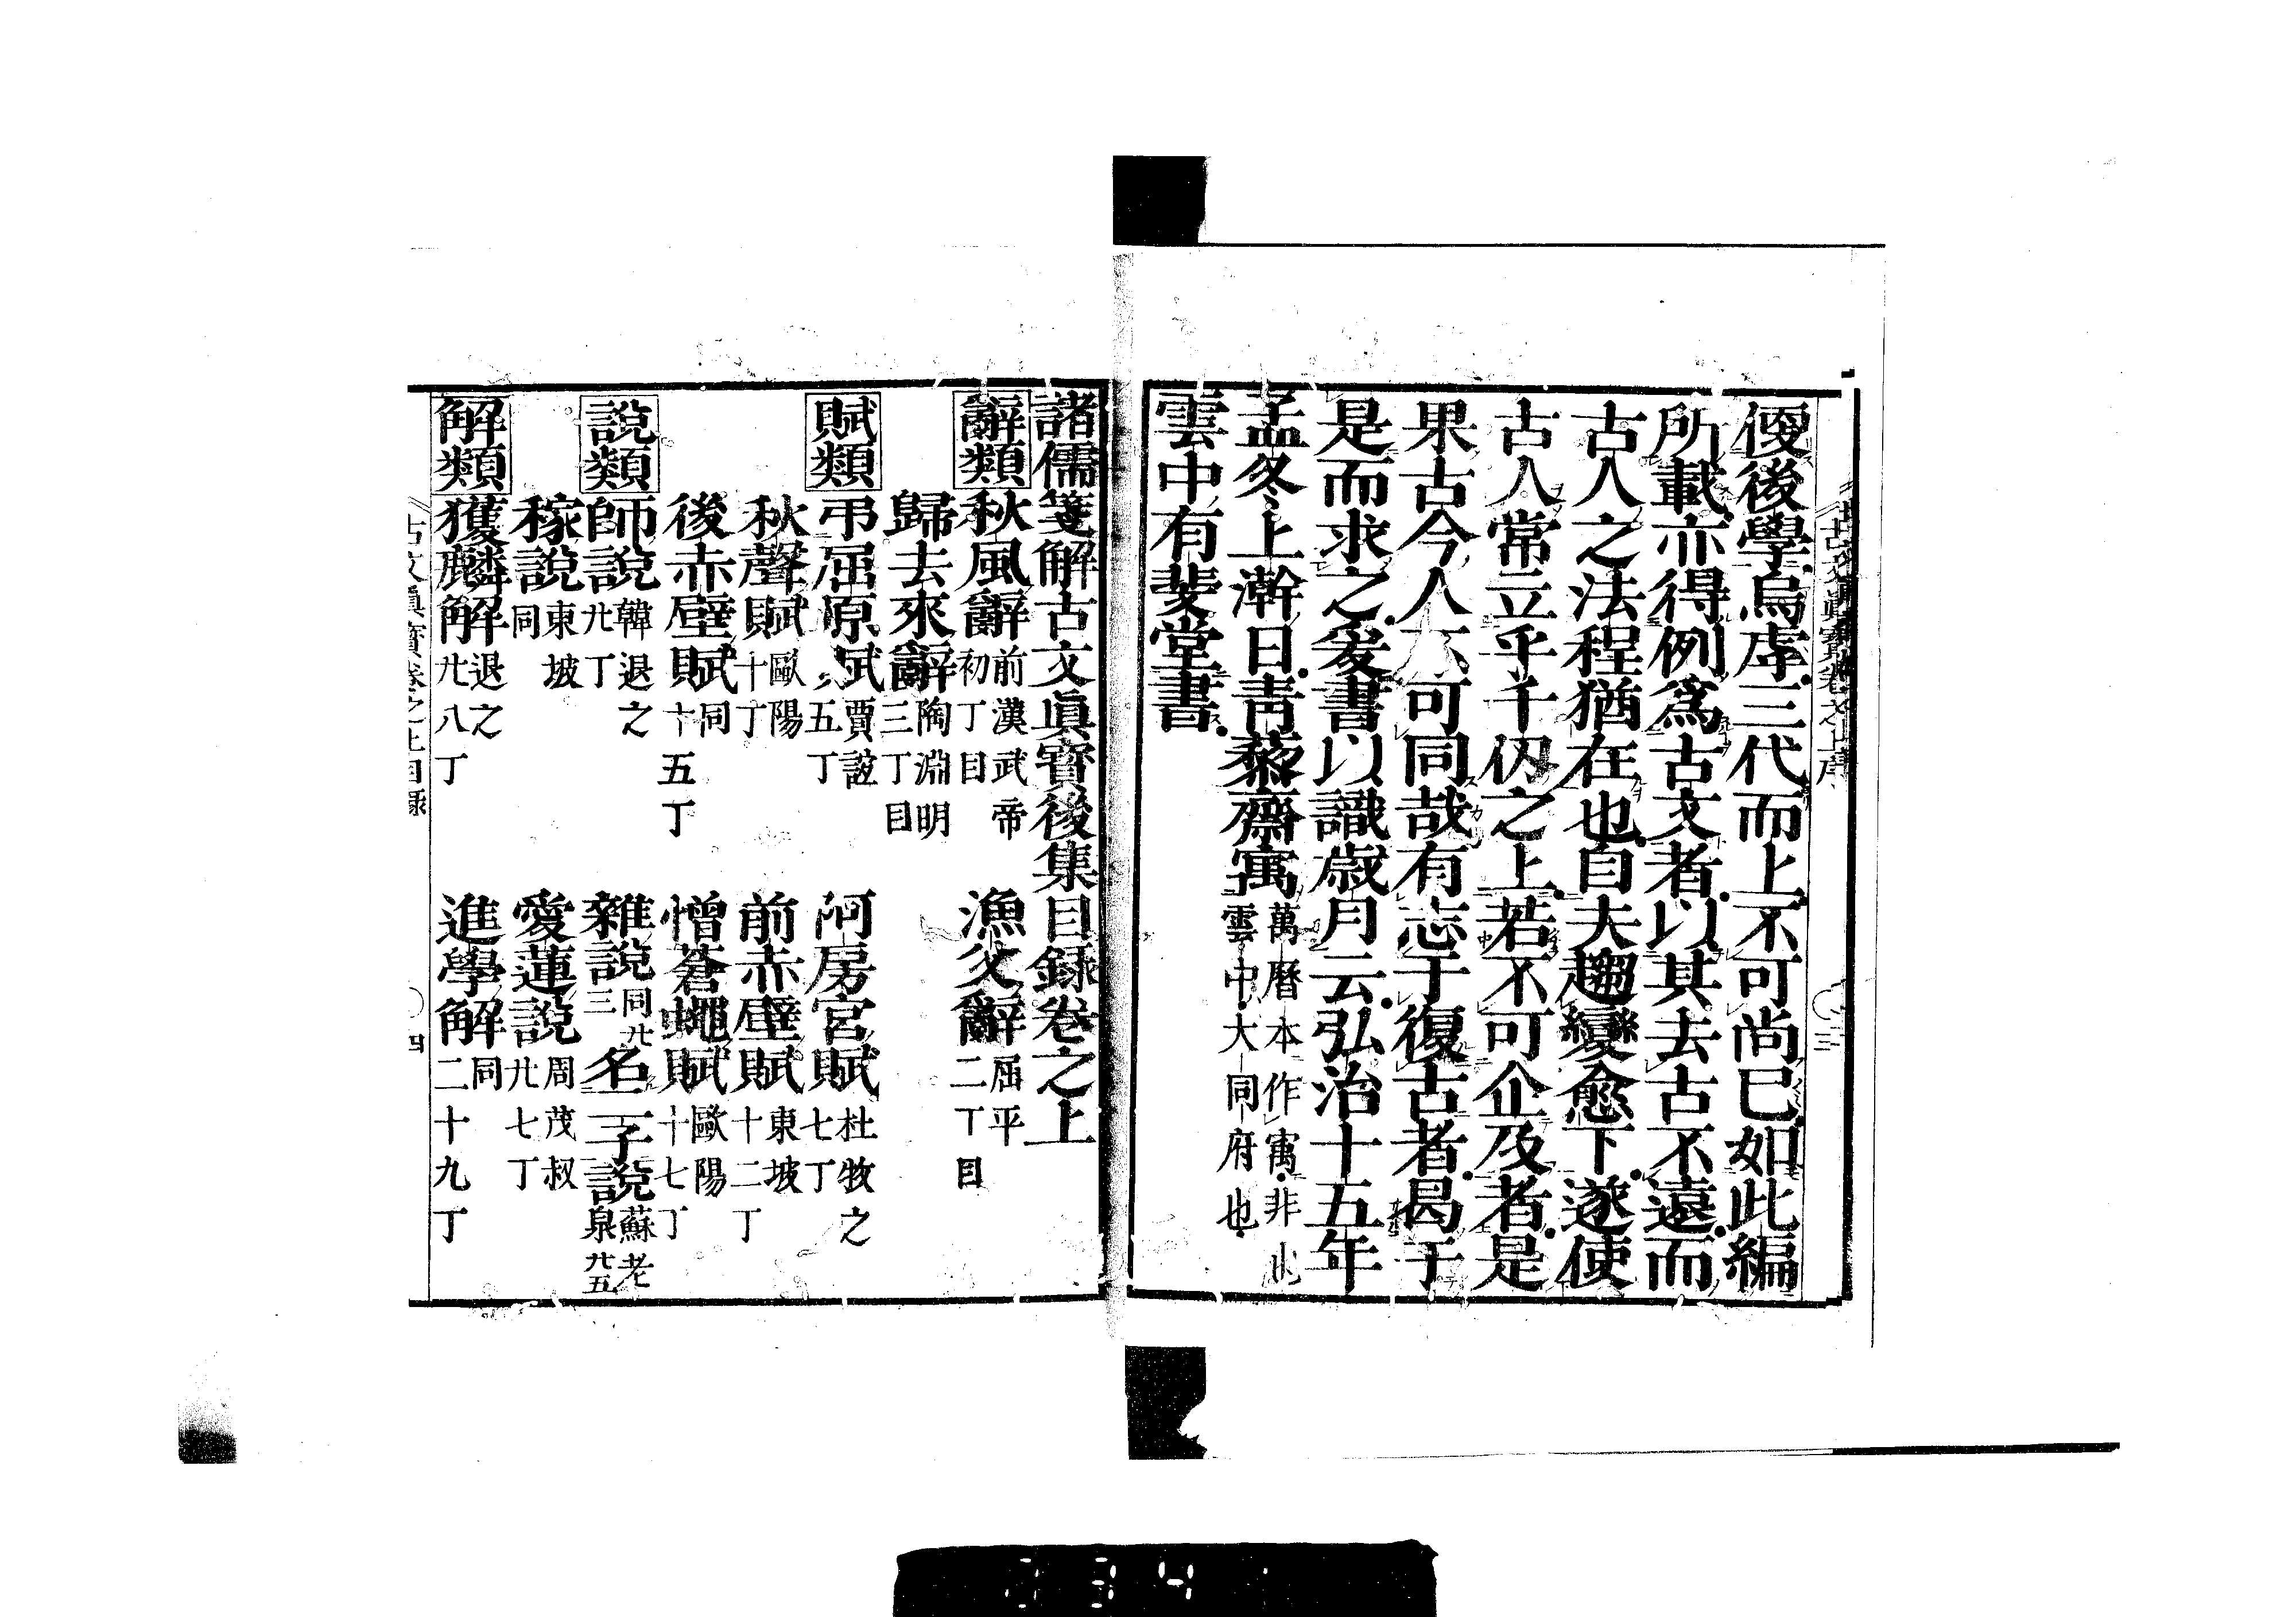 優後學烏虖三代而上不可尚已如此編
所載亦得例爲古文者以其去古不遠而
古人之法程猶在也自夫趨變愈下遂使
古人常立乎千仭之上若不可企及者是
果古今人不可同哉有志于復古者曷于
是而求之爰書以識歲月云弘治十五年
孟冬上澣日靑藜齋寓萬曆本作寓非也
雲中大同府也
雲中有斐堂書
諸儒箋解古文眞寶後集目録卷之上
辭類 秋風辭 前漢武帝 初丁目 漁父辭 屈平 二丁目
歸去來辭 陶淵明 三丁目
賦類 弔屈原賦 賈誼 五丁 阿房宮賦 杜牧之 七丁
秋聲賦 歐陽 十丁 前赤壁賦 東坡 十二丁
後赤壁賦 同 十五丁 憎蒼蠅賦 歐陽 十七丁
說類 師說 韓退之 廿丁 雜說 同 廿三 名二子說 蘇老泉 廿五
稼說 東坡 同 愛蓮說 周茂叔 廿七丁
解類 獲麟解 退之 廿八丁 進學解 同 二十九丁
古文眞寶卷之上目録 四